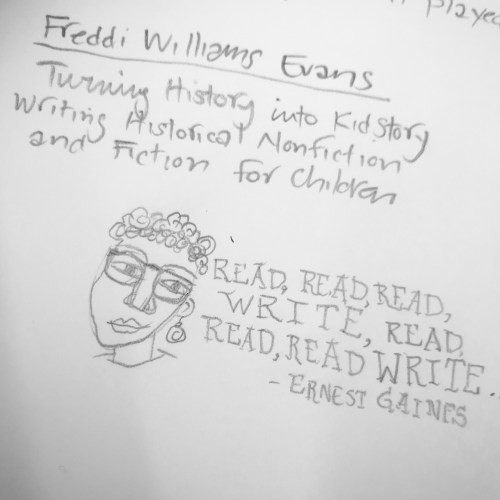 played
Freddi Williams Evans
Turning History into Kidstory
Writing Historical Nonfiction
and Fiction for Children
READ, READ, READ,
WRITE, READ,
READ, READ WRITE...
- ERNEST GAINES